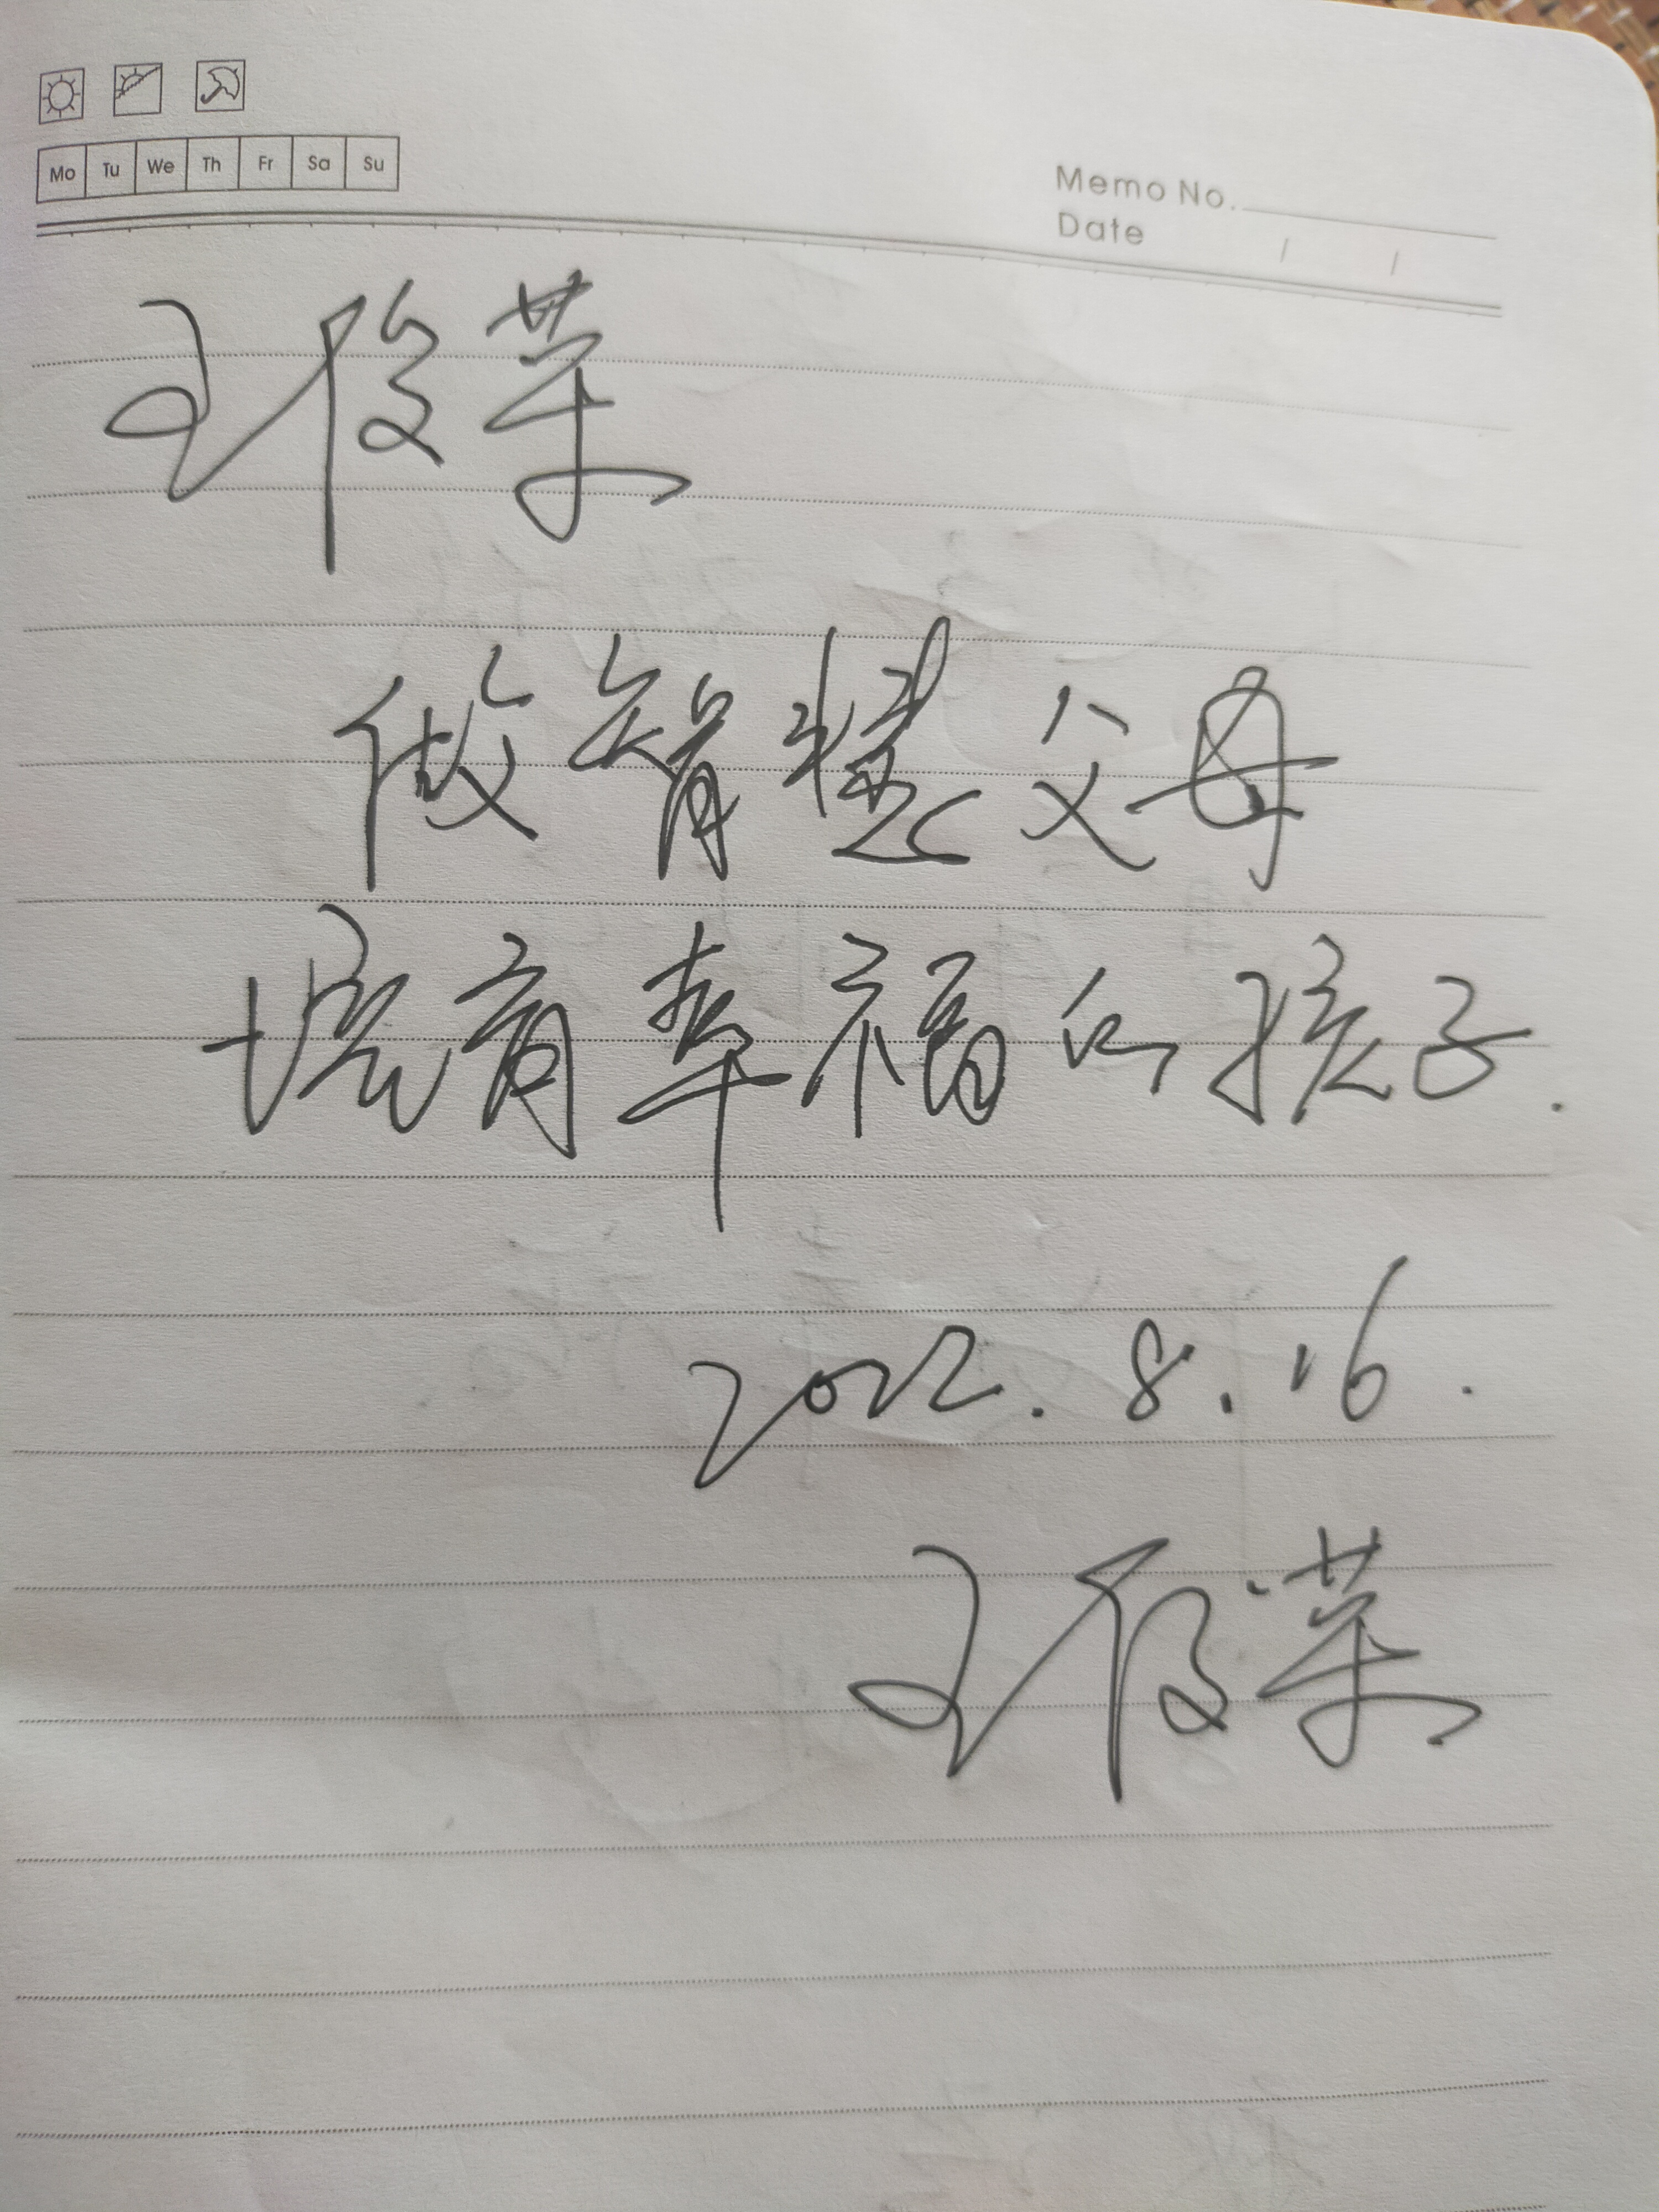 Mo Tu We Th Fr Sa Su
Memo No.
Date / /
王俊苹
做智慧父母
培育幸福的孩子.
2022.8.16.
王俊苹